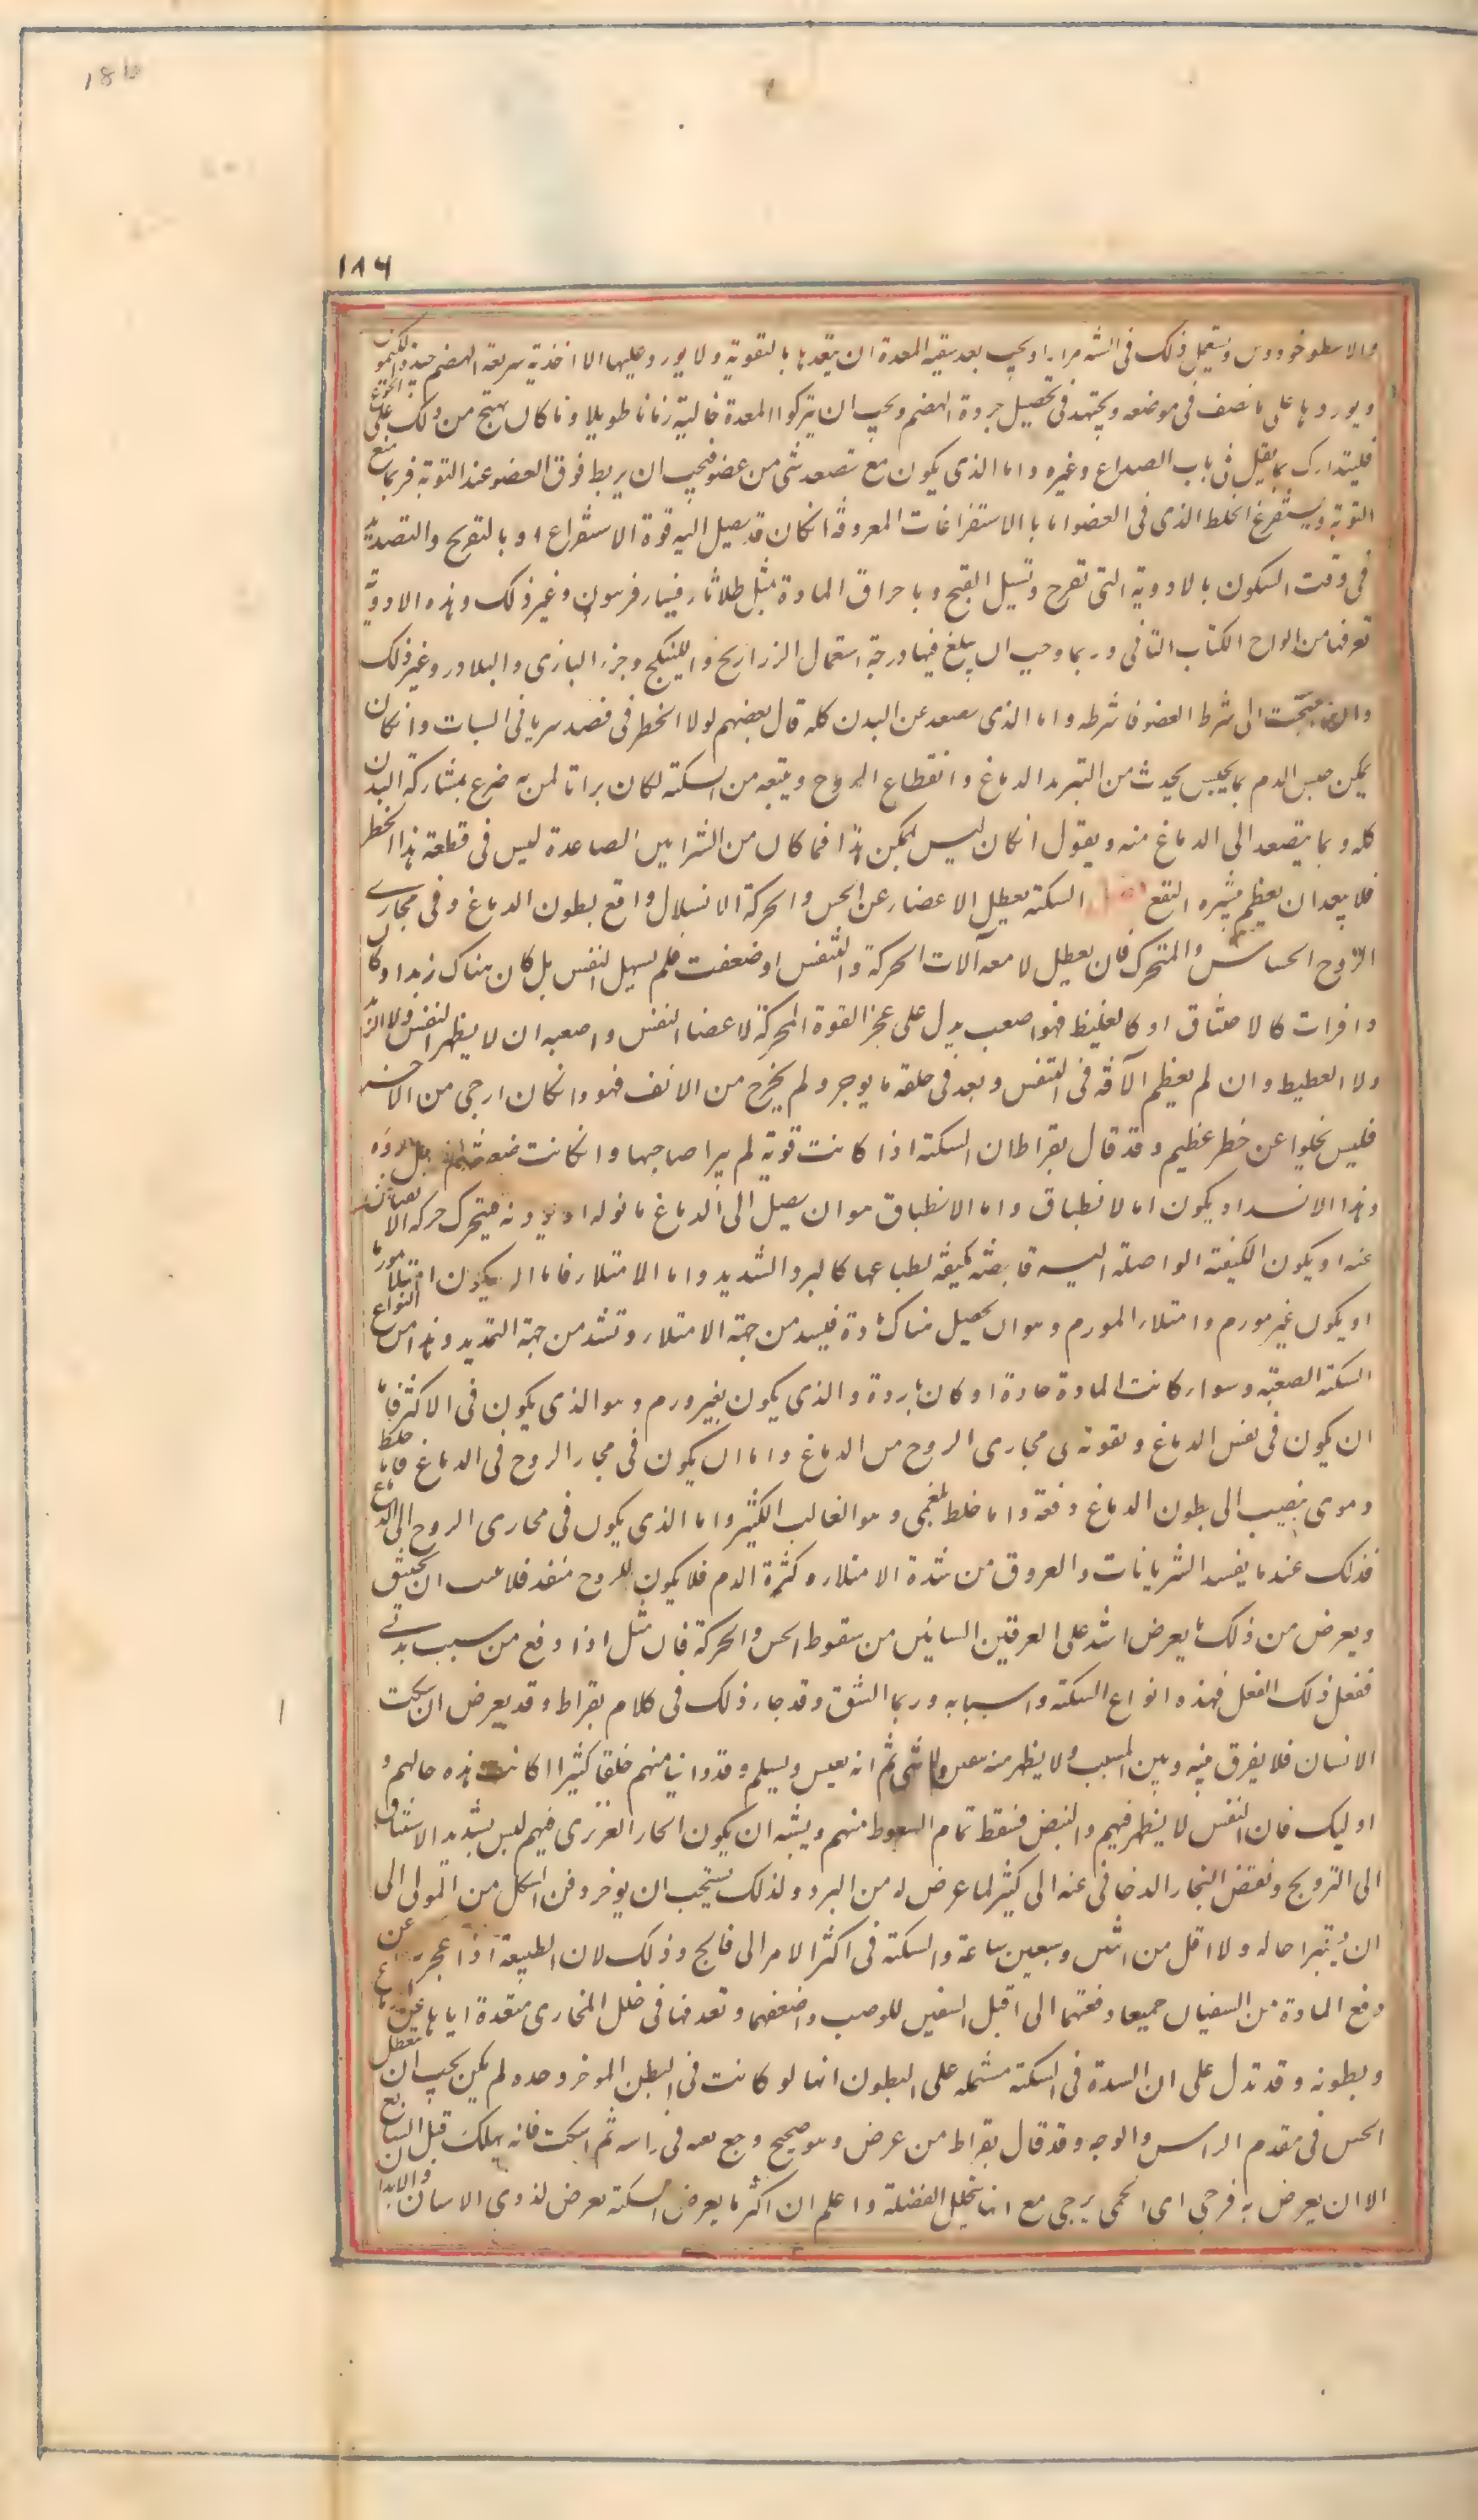 18b
١٨٤
والاسطوخودوس وتستعمل ذلك فى السنه مرارا ويجب بعد تنقيه المعدة ان تتعهدها بالتقوية ولا يورد عليها الا اغذية سريعة الهضم جيدة الكيموس
ويوردها على ما نصف فى موضعه ويجتهد فى تحصيل جودة الهضم ويجب ان يتركوا المعدة خالية زمانا طويلا وما كان يهيج من ذلك على الجوع
فليتدارك بما يقل فى باب الصداع وغيره واما الذى يكون مع تصعد شى من عضو فيجب ان يربط فوق العضو عند النوبة فربما منع
النوبة ويستفرغ الخلط الذى فى العضو اما بالاستفراغات المعروفة انكان قد يصل اليه قوة الاستفراغ او بالتقريح والتصديد
فى وقت السكون بالادوية التى تقرح وتسيل القيح وباحراق المادة مثل طلا ثافسيا وفرسون وغير ذلك وهذه الادوية
تعرفها من الواح الكتاب الثانى وربما وجب ان يبلغ فيها درجة استعمال الذراريح والكبيكج وخرء البازى والبلادر وغير ذلك
والى شرط العضو فاشرطه واما الذى يصعد عن البدن كله قال بعضهم لولا الخطر فى فصد شريانى السبات وانكان
يمكن حبس الدم بما يحبس يحدث من التبريد الدماغ وانقطاع الروح ويتبعه من السكتة لكان براتا لمن به صرع بمشاركة البدن
كله وبما يتصعد الى الدماغ منه ويقول انكان ليس يمكن هذا فما كان من الشرايين الصاعدة ليس فى قطعة هذا الخطر
فلا يبعد ان يعظم بتبره النفع السكتة تعطل الاعضاء عن الحس والحركة الانسداد واقع بطون الدماغ وفى مجارى
الروح الحساس والمتحرك فان تعطل لا معه آلات الحركة والتنفس او ضعفت فلم يسهل النفس بل كان هناك زبد او كان
وافرات كالاختناق او كالغطيط فهو اصعب يدل على عجز القوة المحركة لاعضا التنفس واصعبه ان لا يظهر النفس ولا الزبد
ولا الغطيط وان لم يعظم الآفة فى التنفس وبعد فى حلقه ما يوجر ولم يخرج من الانف فهو وانكان ارجى من الآخر
فليس يخلوا عن خطر عظيم وقد قال بقراط ان السكتة اذا كانت قوية لم يبرا صاحبها وانكانت ضعيفة لم يسهل برؤه
وهذا الانسداد يكون اما لانطباق واما الانطباق هو ان يصل الى الدماغ ما نوله او يوذنه فيتحرك حركة الانقباض
عنه او يكون الكيفية الواصلة اليه قابضة مكيفة لطباعها كالبرد الشديد واما الامتلاء فاما ان يكون امتلاء مورما
او يكون غير مورم وامتلاء المورم وهو ان يحصل هناك مادة فيسد من جهة الامتلاء وتشتد من جهة التمديد وهذا من انواع
السكتة الصعبة وسواء كانت المادة حادة او كان باردة والذى يكون بغير ورم وهو الذى يكون فى الاكثر فاما
ان يكون فى نفس الدماغ وبقوته فى مجارى الروح من الدماغ واما ان يكون فى مجار الروح فى الدماغ فاما خلط
دموى ينصب الى بطون الدماغ دفعة واما خلط بلغمى وهو الغالب الكثير واما الذى يكون فى مجارى الروح الى الدماغ
فذلك عندما يفسد الشريانات والعروق من شدة الامتلاء وكثرة الدم فلا يكون للروح منفذ فلا يلبث ان يختنق
ويعرض من ذلك ما يعرض اشد على العرقين السباتيين من سقوط الحس والحركة فان مثل اذا وقع من سبب بدنى
فعل ذلك الفعل فهذه انواع السكتة واسبابه وربما الشق وقد جاء ذلك فى كلام بقراط وقد يعرض ان يسكت
الانسان فلا يفرق بينه وبين الميت ولا يظهر منه نفس ولا شى ثم انه يعيش ويسلم وقد راينا منهم خلقا كثيرا كانت هذه حالهم و
اوليك فان النفس لا يظهر فيهم والنبض فسقط تمام السقوط منهم ويشبه ان يكون الحار الغريزى فيهم ليس بشديد الافتقار
الى الترويح ونفض البخار الدخانى عنه الى كثير لما عرض له من البرد ولذلك يستحب ان يوخر دفن الشكل من الموتى الى
ان يتبرا حاله ولا اقل من اثنين وسبعين ساعة والسكتة فى اكثر الامر الى فالج وذلك لان الطبيعة اذا عجزت عن
دفع المادة من السقيان جميعا دفعتها الى اقبل السقين للوصب واضعفهما ونفذفها فى خلل المجارى متعدة اياها عن
وبطونه وقد تدل على ان السدة فى السكتة مشتملة على البطون انها لو كانت فى البطن الموخر وحده لم يكن يجب ان تعطل
الحس فى مقدم الراس والوجه وقد قال بقراط من عرض وهو صحيح وجع بغته فى راسه ثم اسكت فانه يهلك قبل السابع
الا ان يعرض به فرجى اى الحمى يرجى مع انها تخلل الفضلة واعلم ان اكثر ما يعرض السكتة يعرض لذوى الاسنان والابدان